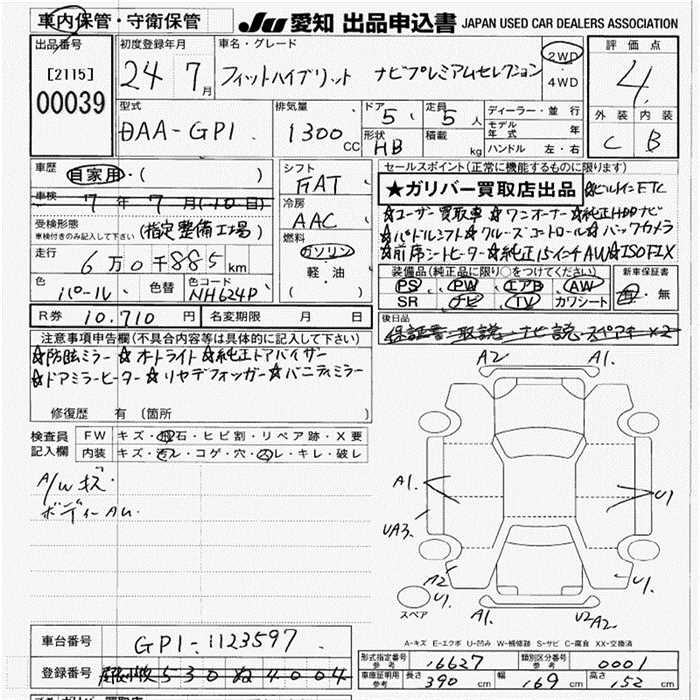 車内保管・守衛保管
JU 愛知 出品申込書 JAPAN USED CAR DEALERS ASSOCIATION
出品番号
[2115]
00039
初度登録年月
24 7月
車名・グレード
フィットハイブリット ナビプレミアムセレクション
2WD
・
4WD
評価点
4
外装 内装
C B
型式
DAA-GP1
排気量
1300 CC
ドア 5
定員 5人
形状 HB
積載 kg
ディーラー・並行
モデル年式 年
ハンドル 左・右
車歴
自家用・( )
車検 7年7月(10日)
受検形態
車検付きのみ記入して下さい
(指定整備工場)
走行
6万0千885km
色 パール
色替
色コード NH624P
R券 10,710円
名変期限 月 日
シフト
FAT
冷房
AAC
燃料
ガソリン
・
軽・油
セールスポイント(正常に機能するものに限ります)
★ガリバー買取店出品 ☆ビルトインETC
☆ユーザー買取車 ☆ワンオーナー ☆純正HDDナビ
☆パドルシフト ☆クルーズコントロール ☆バックカメラ
☆前席シートヒーター ☆純正15インチAW ☆ISOFIX
装備品(純正品に限り○をつけてください)
PS PW エアB AW
SR ナビ TV カワシート
新車保証書
有・無
後日品
保証書 取説 ナビ説 スペアキー×2
注意事項申告欄(不具合内容等は具体的に記入して下さい)
☆防眩ミラー ☆オートライト ☆純正ドアバイザー
☆ドアミラーヒーター ☆リヤデフォッガー ☆バニティミラー
修復歴 有(箇所 )
検査員
記入欄
FW キズ・飛石・ヒビ割・リペア跡・X要
内装 キズ・汚レ・コゲ・穴・スレ・キレ・破レ
A/Wキズ
ボディーAU
A2 A1
A1
U1
UA3
A2
U1
U1
スペア
A1
U2 A2
A-キズ E-エクボ U-凹み W-補修跡 S-サビ C-腐食 XX-交換済
車台番号 GP1-1123597
登録番号 530 ぬ 4004
型式指定番号
参考
16627
類別区分番号
参考
0001
車庫証明用
参考
長さ 390 cm
幅 169 cm
高さ 152 cm